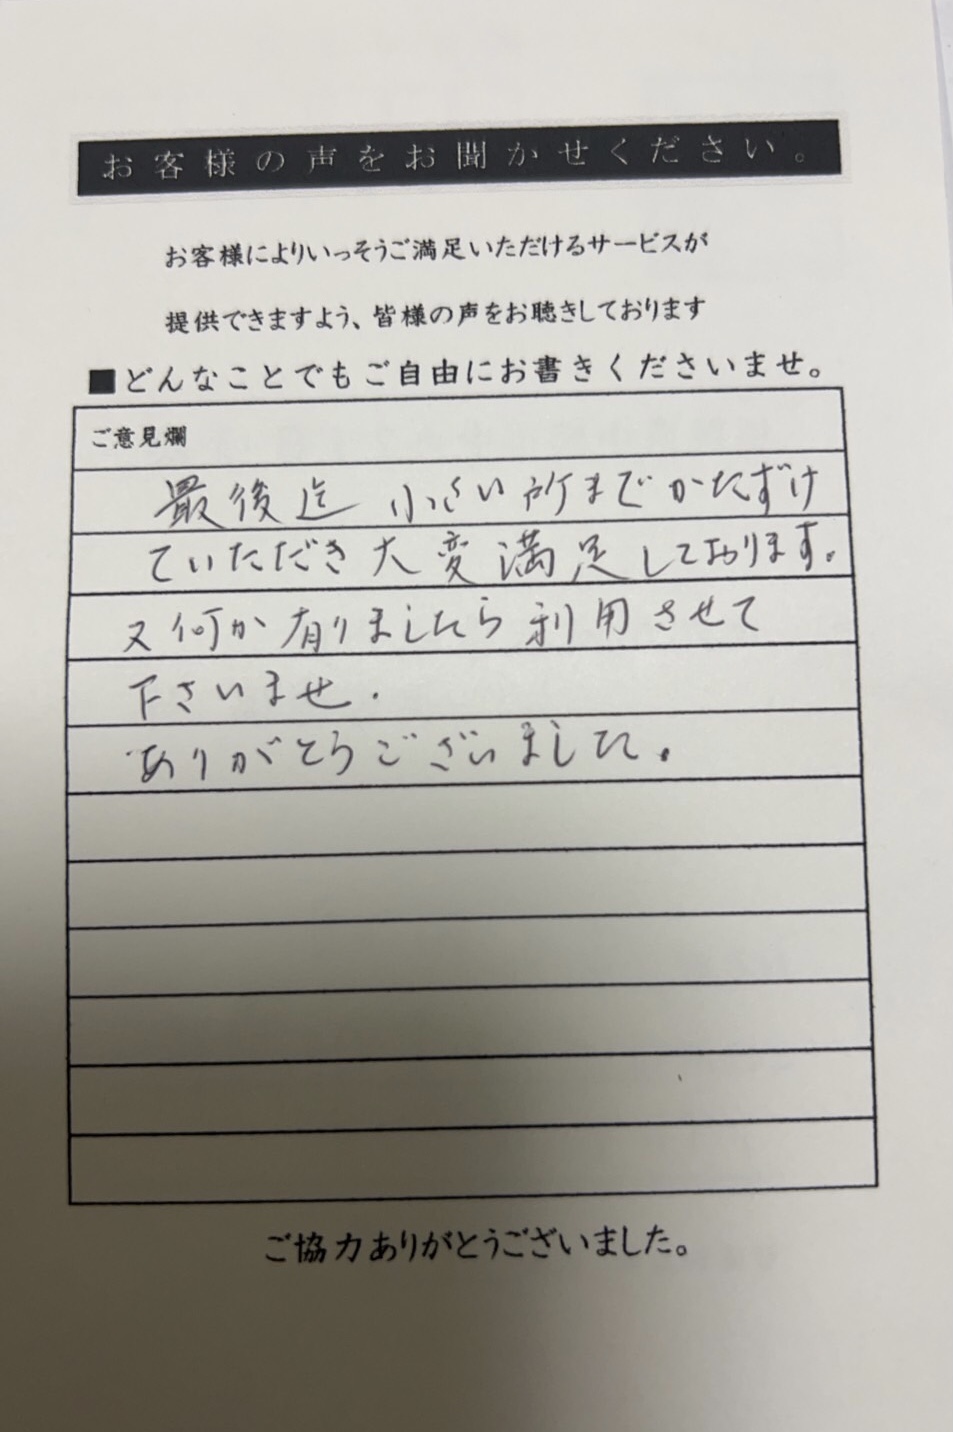 お客様の声をお聞かせください。
お客様によりいっそうご満足いただけるサービスが
提供できますよう、皆様の声をお聴きしております
■どんなことでもご自由にお書きくださいませ。
ご意見爛
最後迄 小さい所までかたずけ
ていただき大変満足しております。
又何か有りましたら利用させて
下さいませ.
ありがとうございました。
ご協力ありがとうございました。